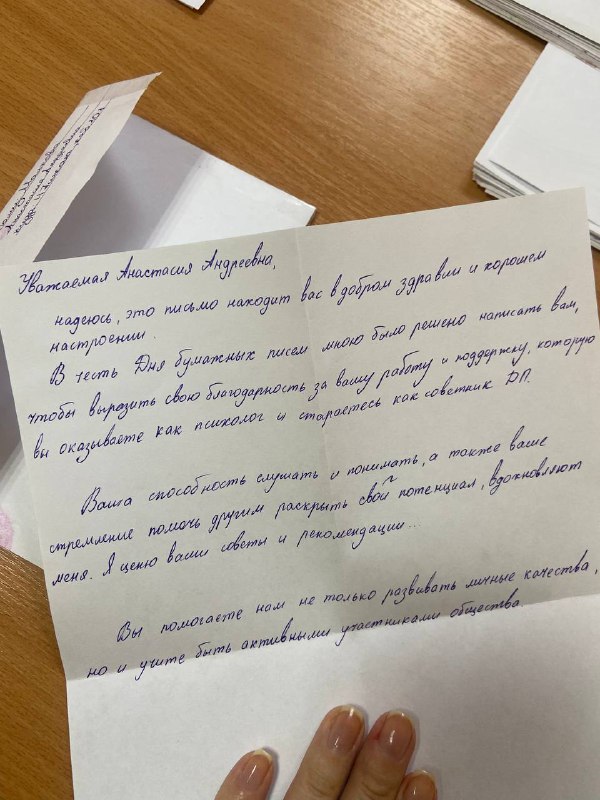 Уважаемая Анастасия Андреевна,
надеюсь, это письмо находит вас в добром здравии и хорошем
настроении.
В честь Дня бумажных писем мною было решено написать вам,
чтобы выразить свою благодарность за вашу работу и поддержку, которую
вы оказываете как психолог и стараетесь как советник ДП.
Ваша способность слушать и понимать, а также ваше
стремление помочь другим раскрыть свой потенциал, вдохновляют
меня. Я ценю ваши советы и рекомендации...
Вы помогаете нам не только развивать личные качества,
но и учите быть активными участниками общества.